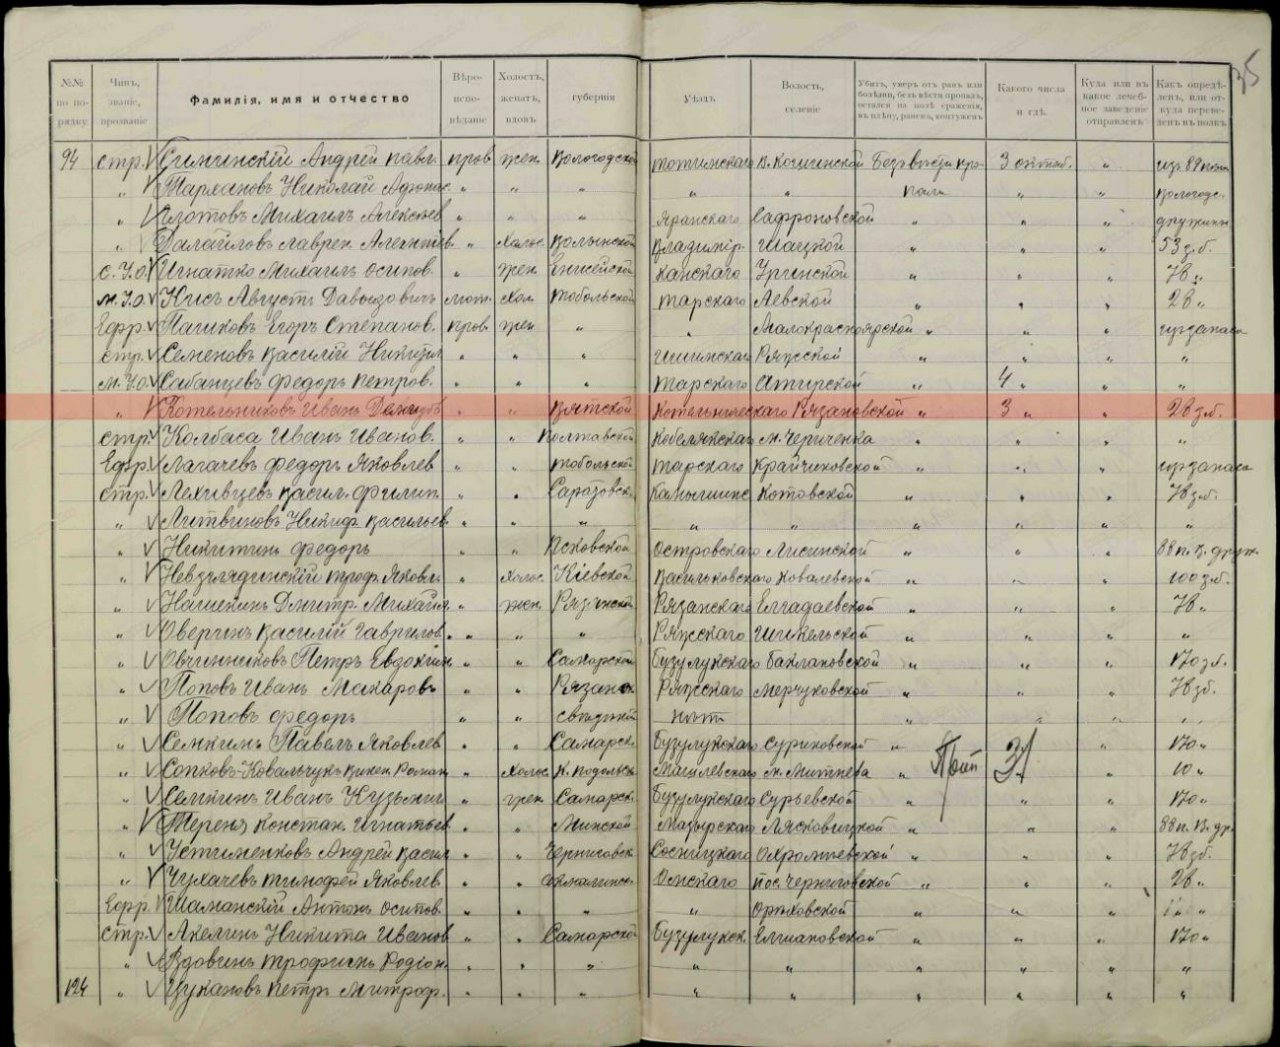 35
№№ по порядку Чинъ, званіе, прозваніе Фамилія, имя и отчество Вѣроисповѣданіе Холостъ, женатъ, вдовъ губернія Уѣздъ Волость, селеніе Убитъ, умеръ отъ ранъ или болѣзни, безъ вѣсти пропалъ, остался на полѣ сраженія, въ плѣну, раненъ, контуженъ Какого числа и гдѣ. Куда или въ какое лечебное заведеніе отправленъ Какъ опредѣленъ, или откуда переведенъ въ полкъ
94 стр. Андрей Павл. прав. жен. Вологодской Тотемскаго Безъ вѣсти про- 3 октяб. " изъ 89
" Тархановъ Николай " " " " " пали " " Вологодс.
" Михаилъ Алексѣев " " " Яранскаго Сафроновской " " " дружины
" Лаврен. " Холос. Волынской Владимір. Шацкой " " " 53 з.б.
с.У.О. Игнатко Михаилъ Осипов. " жен. Енисейской Канскаго Уринской " " " 78 "
м.У.О. Августъ Давыдовичъ лют. Хол. Тобольской Тарскаго Левской " " " 28 "
Ефр. Егоръ Степанов. прав. жен. " " Малокрасноярской " " " изъ запаса
стр. Семеновъ Василій " " " Ишимскаго " " " "
м.У.О. Сабанцевъ Федоръ Петров. " " " Тарскаго Атирской " 4 " " "
" Котельниковъ Иванъ " " Вятской Котельническаго Рязановской " 3 " " 28 з.б.
стр. Колбаса Иванъ Иванов. " " Полтавской Кобелякскаго " " " "
Ефр. Лагачевъ Федоръ Яковлев " " Тобольской Тарскаго Крайчиковской " " " изъ запаса
стр. Лехивцевъ Васил. Филип. " " Саратовск. Камышинс. Котовской " " " 78 з.б.
" Литвиновъ Никиф. Васильев. " " " " " " " " "
" Никитинъ Федоръ " " Псковской Островскаго Лисинской " " " 88 п. В. друж.
" Невзглядинскій Троф. Яковл. " Холос. Кіевской Васильковскаго Ковалевской " " " 100 з.б.
" Дмитр. Михайл. " жен. Рязанской Рязанскаго " " " 78 "
" Оверчинъ Василій Гаврилов. " " " Ряжскаго " " " "
" Овчинниковъ Петръ Евдоким. " " Самарской Бузулукскаго Баклановской " " " 170 з.б.
" Поповъ Иванъ Макаровъ " " Рязанск. Ряжскаго " " " 78 з.б.
" Поповъ Федоръ " " свѣдѣній нѣтъ " " " "
" Семкинъ Павелъ Яковлев " " Самарск. Бузулукскаго " " 170 "
" Сопковъ-Ковальчукъ Викен. Роман. " Холос. К. Подольск. Могилевскаго м. " " 10 "
" Семкинъ Иванъ Кузьмич " жен. Самарск. Бузулукскаго " " " 170 "
" Тереня Констан. Игнатьев " " Минской Мозырскаго Лясковицкой " " " 88 п. В. др.
" Устименковъ Андрей Васил. " " Чернигов. Сосницкаго " " " 78 з.б.
" Чухачевъ Тимофей Яковлев. " " Акмолинск. Омскаго пос. Черниговской " " " 28 "
Ефр. Шаманскій Антонъ Осипов. " " " " Орѣховской " " " "
стр. Акелинъ Никита Иванов " " Самарской Бузулукск. " " " 170 "
" Вдовинъ Трофимъ Родіон. " " " " " " " " "
124 " Цукановъ Петръ Митроф. " " " " " " " " "